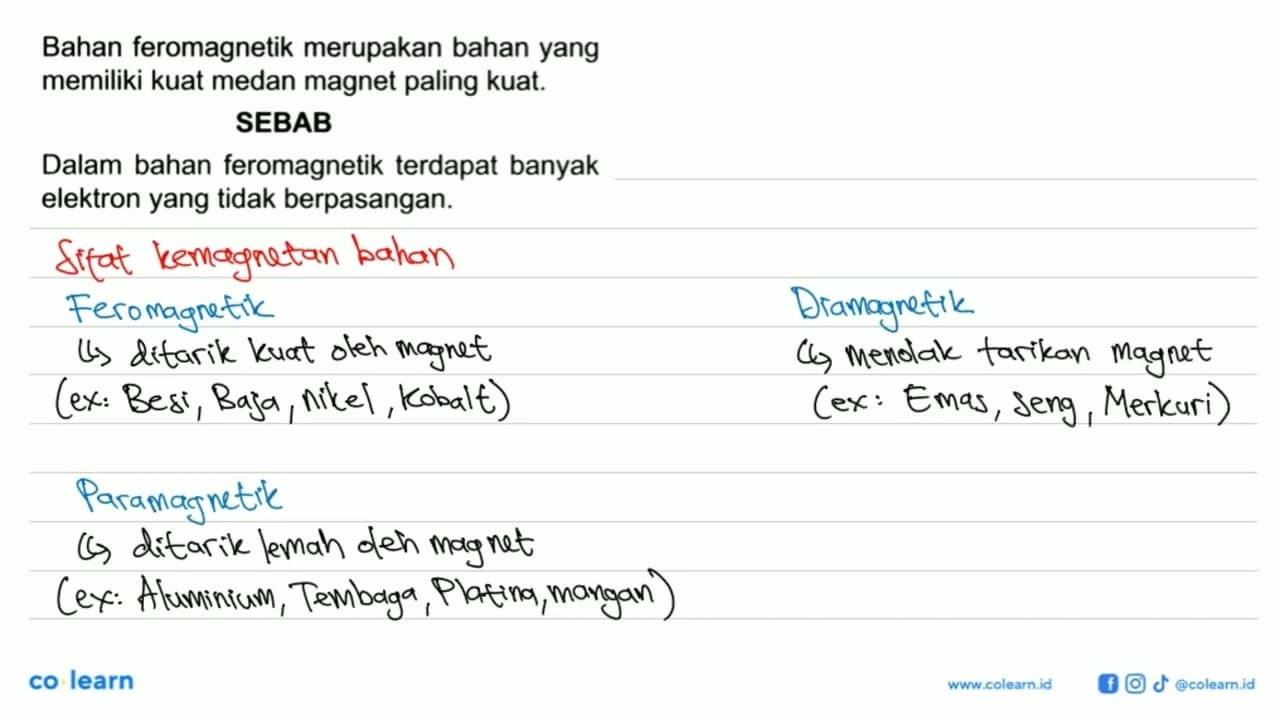 Bahan feromagnetik merupakan bahan yang
memiliki kuat medan magnet paling kuat.
SEBAB
Dalam bahan feromagnetik terdapat banyak
elektron yang tidak berpasangan.
Sifat kemagnetan bahan
Feromagnetik
↳ ditarik kuat oleh magnet
(ex: Besi, Baja, nikel, Kobalt)
Diamagnetik
↳ Menolak tarikan magnet
(ex: Emas, Seng, Merkuri)
Paramagnetik
↳ ditarik lemah oleh magnet
(ex: Aluminium, Tembaga, Platina, mangan)
co learn
www.colearn.id
@colearn.id